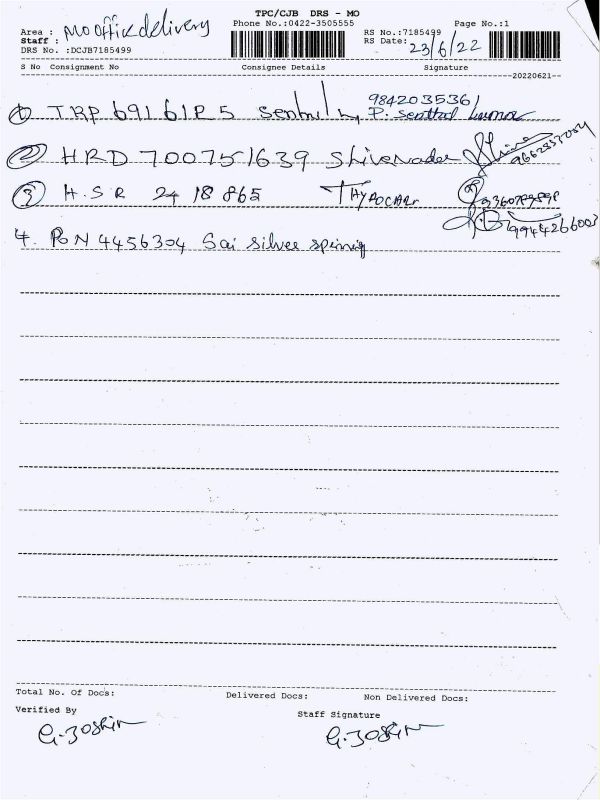 TPC/CJB DRS - MO
Area : MO office delivery Phone No.:0422-3505555 Page No.:1
Staff : RS No.:7185499
DRS No. :DCJB7185499 RS Date: 23/6/22
S No Consignment No Consignee Details Signature
20220621
1 TRP 69161825 9842035361
P. Senthil kumar
2 HRD 700751639 Shivanader
3 H.S.R 24 18 865
4. PON 4456304 Sai silver spinnig 9944266003
Total No. Of Docs: Delivered Docs: Non Delivered Docs:
Verified By Staff Signature
G. JOSKIN G. JOSKIN